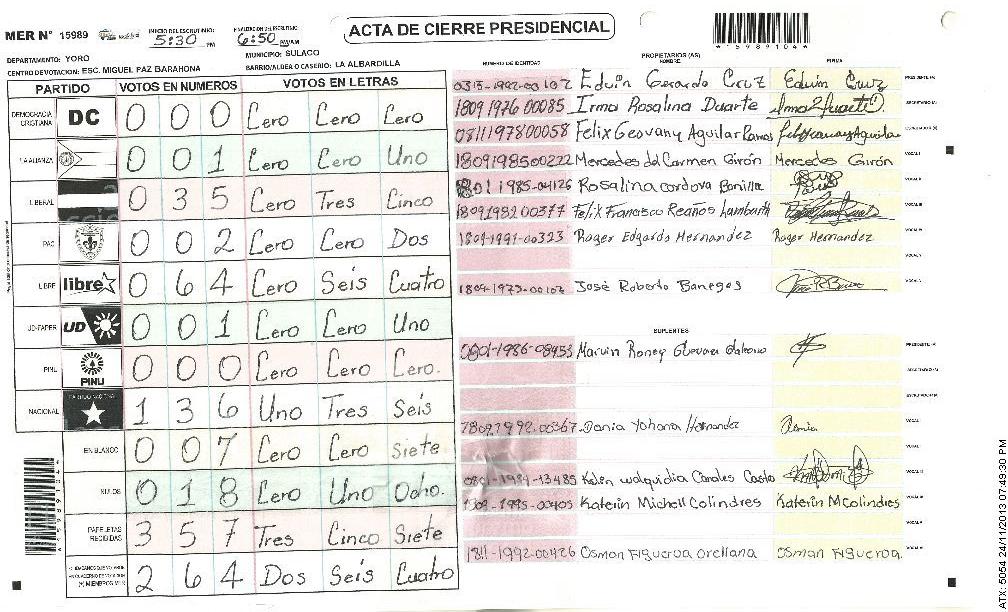 MER N° 15989
INICIO DEL ESCRUTINIO: 5:30 PM
FINALIZACION DEL ESCRUTINIO 6:50 PM/AM
ACTA DE CIERRE PRESIDENCIAL
*15989104*
DEPARTAMENTO: YORO
MUNICIPIO: SULACO
CENTRO DE VOTACION: ESC. MIGUEL PAZ BARAHONA
BARRIO/ALDEA O CASERIO: LA ALBARDILLA
PARTIDO VOTOS EN NUMEROS VOTOS EN LETRAS
DEMOCRACIA CRISTIANA DC 0 0 0 Cero Cero Cero
LA ALIANZA 0 0 1 Cero Cero Uno
LIBERAL 0 3 5 Cero Tres Cinco
PAC 0 0 2 Cero Cero Dos
LIBRE libre 0 6 4 Cero Seis Cuatro
UD-FAPER UD 0 0 1 Cero Cero Uno
PINU PINU 0 0 0 Cero Cero Cero.
NACIONAL PARTIDO NACIONAL 1 3 6 Uno Tres Seis
EN BLANCO 0 0 7 Cero Cero Siete
NULOS 0 1 8 Cero Uno Ocho.
PAPELETAS RECIBIDAS 3 5 7 Tres Cinco Siete
2 6 4 Dos Seis Cuatro
PROPIETARIOS (AS)
NUMERO DE IDENTIDAD NOMBRE. FIRMA
Edwin Gerardo Cruz Edwin Cruz PRESIDENTE (A)
1809 1976 00085 Irma Rosalina Duarte SECRETARIO (A)
0811197800058 Felix Geovany Aguilar Ramos ESCRUTADOR (A)
1809198500222 Mercedes del Carmen Girón Mercedes Girón VOCAL I
1985-04126 Rosalina cordova Bonilla
1809198200377 Felix Francisco VOCAL III
1804-1991-00323 Roger Edgardo Hernandez Roger Hernandez
José Roberto Banegas
SUPLENTES
0801-1986-08453 Marvin Roney PRESIDENTE (A)
SECRETARIO (A)
ESCRUTADOR (A)
1809.1992.00367 Dania Yohana Hernandez Dania VOCAL I
0801-1984-13485 Canales Castro
Katerin Michell Colindres Katerin M Colindres
1811-1992-00426 Osman Figueroa Orellana Osman Figueroa.
ATX: 5054 24/11/2013 07:49:30 PM